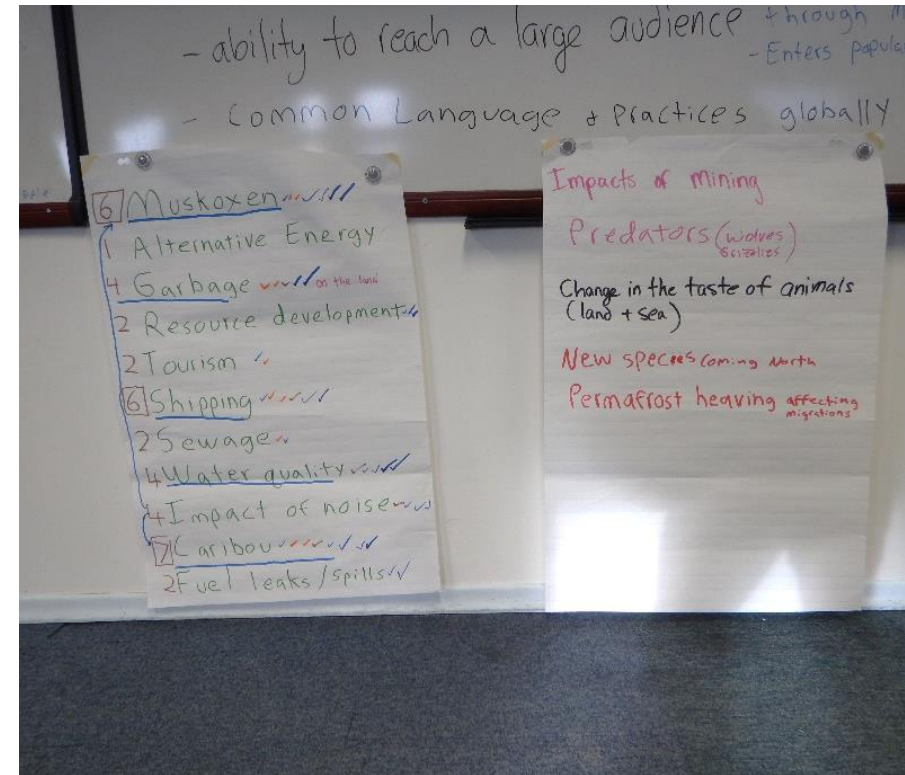 - ability to reach a large audience through
- Enters
- Common Language & Practices globally
6 Muskoxen
1 Alternative Energy
4 Garbage on the land
2 Resource development
2 Tourism
6 Shipping
2 Sewage
4 Water quality
4 Impact of noise
7 Caribou
2 Fuel leaks/spills
Impacts of mining
Predators (wolves
Grizzlies)
Change in the taste of animals
(land + sea)
New species coming North
Permafrost heaving affecting
migrations